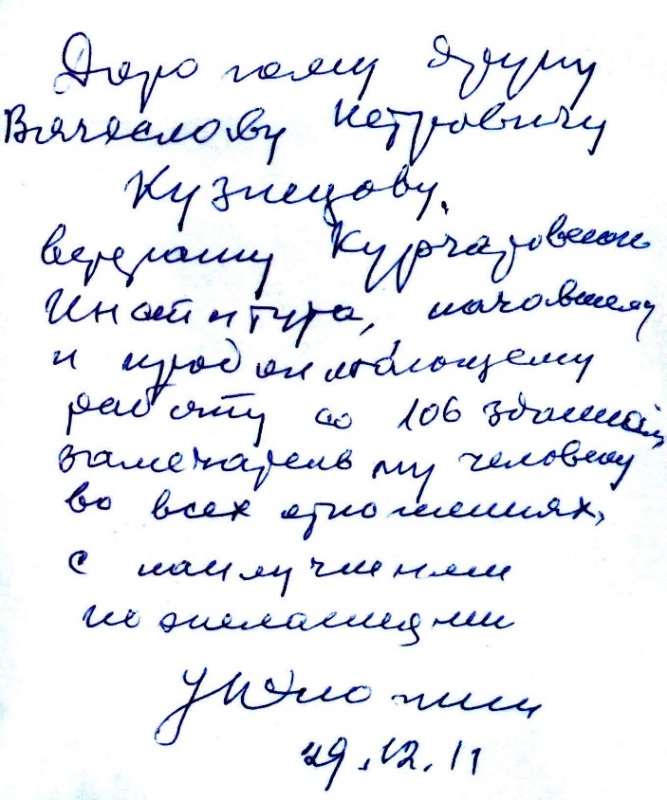 Дорогому другу
Вячеславу Петровичу
Кузнецову,
ветерану Курчатовского
Института, начавшему
и продолжающему
работу со 106 здания,
замечательному человеку
во всех отношениях,
с наилучшими
пожеланиями
29.12.11